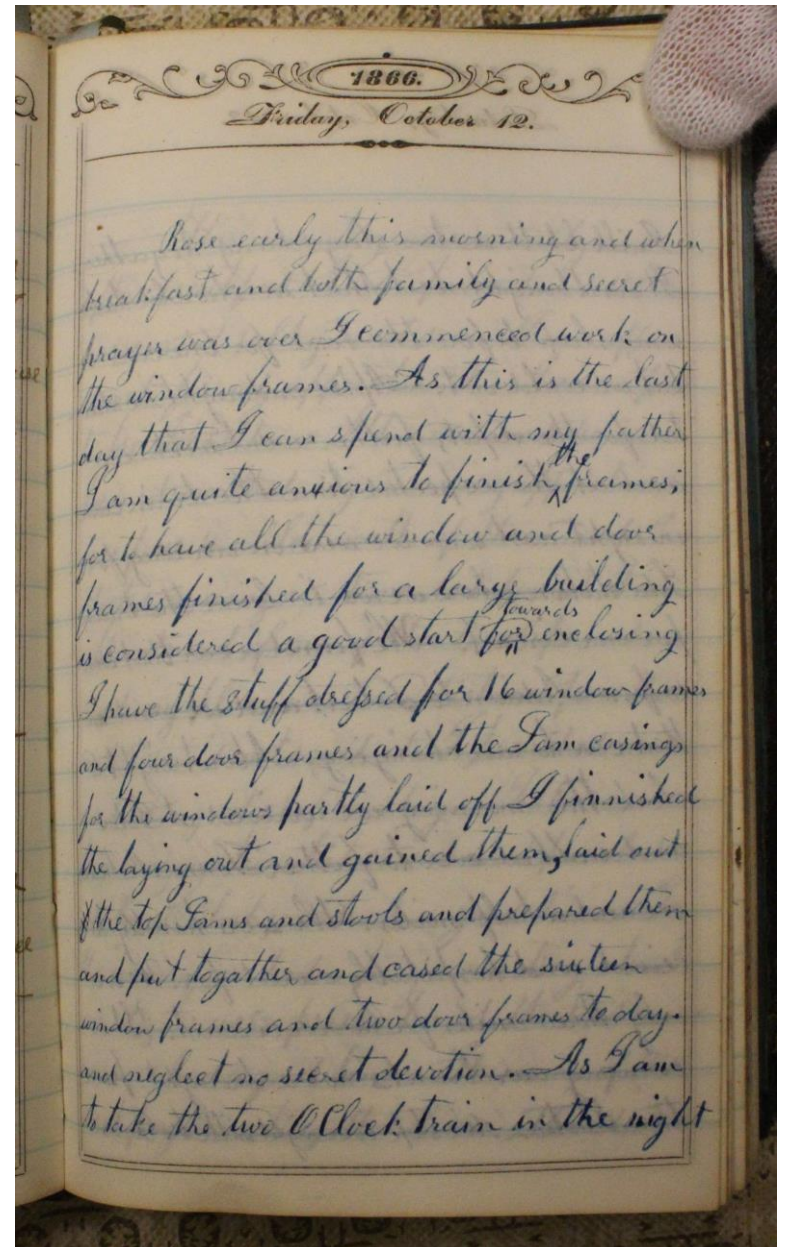 1866.
Friday, October 12.
Rose early this morning and when
breakfast and both family and secret
prayer was over I commenced work on
the window frames. As this is the last
day that I can spend with my father
I am quite anxious to finish the frames;
for to have all the window and door
frames finished for a large building
is considered a good start for towards enclosing
I have the stuff dressed for 16 window frames
and four door frames and the Jam casings
for the windows partly laid off I finnished
the laying out and gained them, laid out
the top Jams and stools and prepared them
and put togather and cased the sixteen
window frames and two door frames to day.
and neglect no secret devotion. As I am
to take the two OClock train in the night